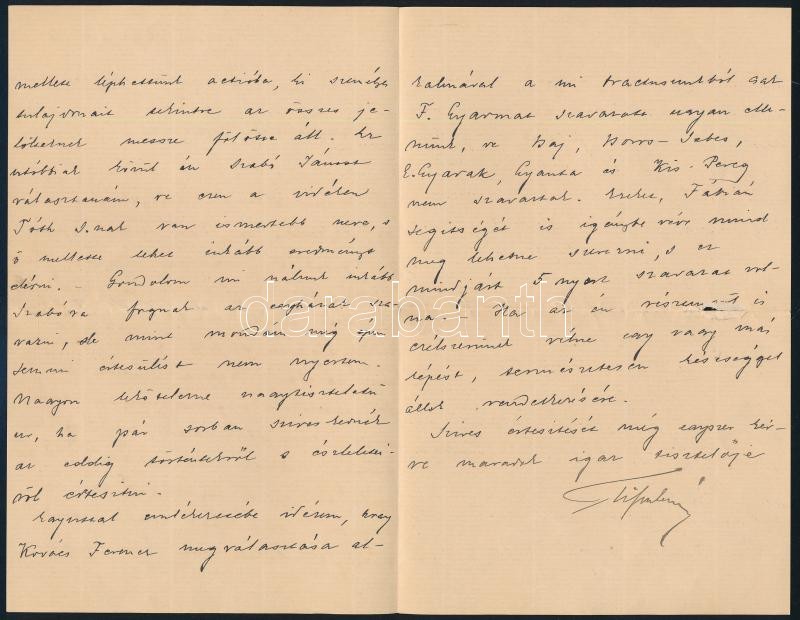 mellett léphettünk actióba, ki személyes
tulajdonait tekintve az összes je-
löltetnek messze fölötte áll. Ez
utóbbiak közül én Szabó Jánost
választanám, ve ezen a vidéken
Tóth S.nak van ismertebb neve, s
ő mellette lehet inkább eredményt
elérni. – Gondolom mi nálunk inkább
Szabóra fognak az egyházak sza-
vazni, de mint mondám még épen
semmi értesülést nem nyertem.
Nagyon lekötelezne nagytiszteletű
úr, ha pár sorban szíveskednék
az eddig történtekről s észleletei-
ről értesítni.
Egyúttal emlékezetébe idézem, hogy
Kovács Ferencz megválasztása al-
kalmával a mi tractusunkból csak
F. Gyarmat szavazott ugyan elle-
nünk, ve Haj, Boros-Sebes,
E.Gyarak, Gyanta és Kis-Pereg
nem szavaztak. Ezeket, Fábián
segítségét is igénybe véve mind
meg lehetne szerezni, s ez
mindjárt 5 nyert szavazat vol-
na. – Ha az én részemről is
czélszerűnek vélne egy vagy más
lépést, természetesen készséggel
állok rendelkezésére.
Szives értesítését még egyszer kér-
ve maradok igaz tisztelője
darabanth